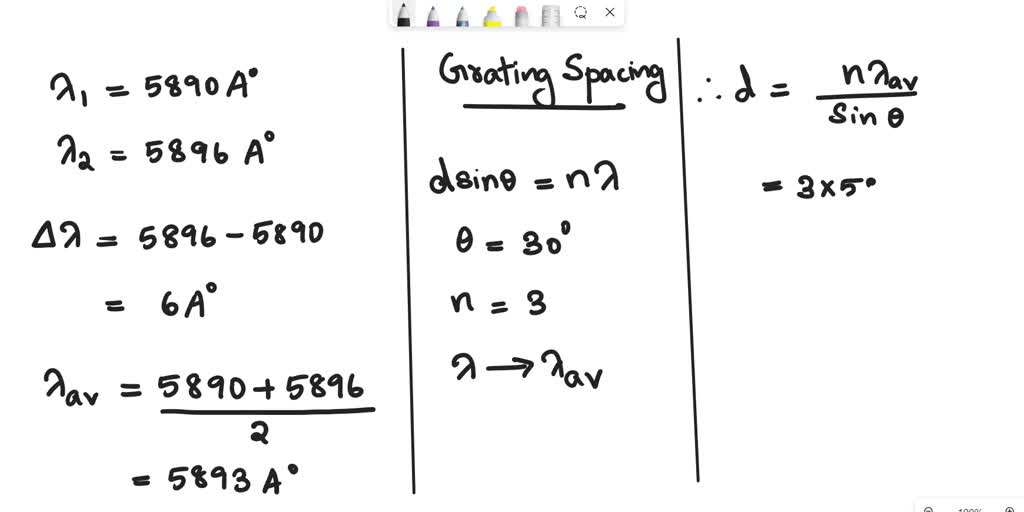 λ₁ = 5890 A°
λ₂ = 5896 A°
Δλ = 5896 - 5890
= 6 A°
λav = 5890 + 5896
2
= 5893 A°
Grating Spacing
dsinθ = nλ
θ = 30°
n = 3
λ → λav
∴ d = nλav
Sin θ
= 3 × 5